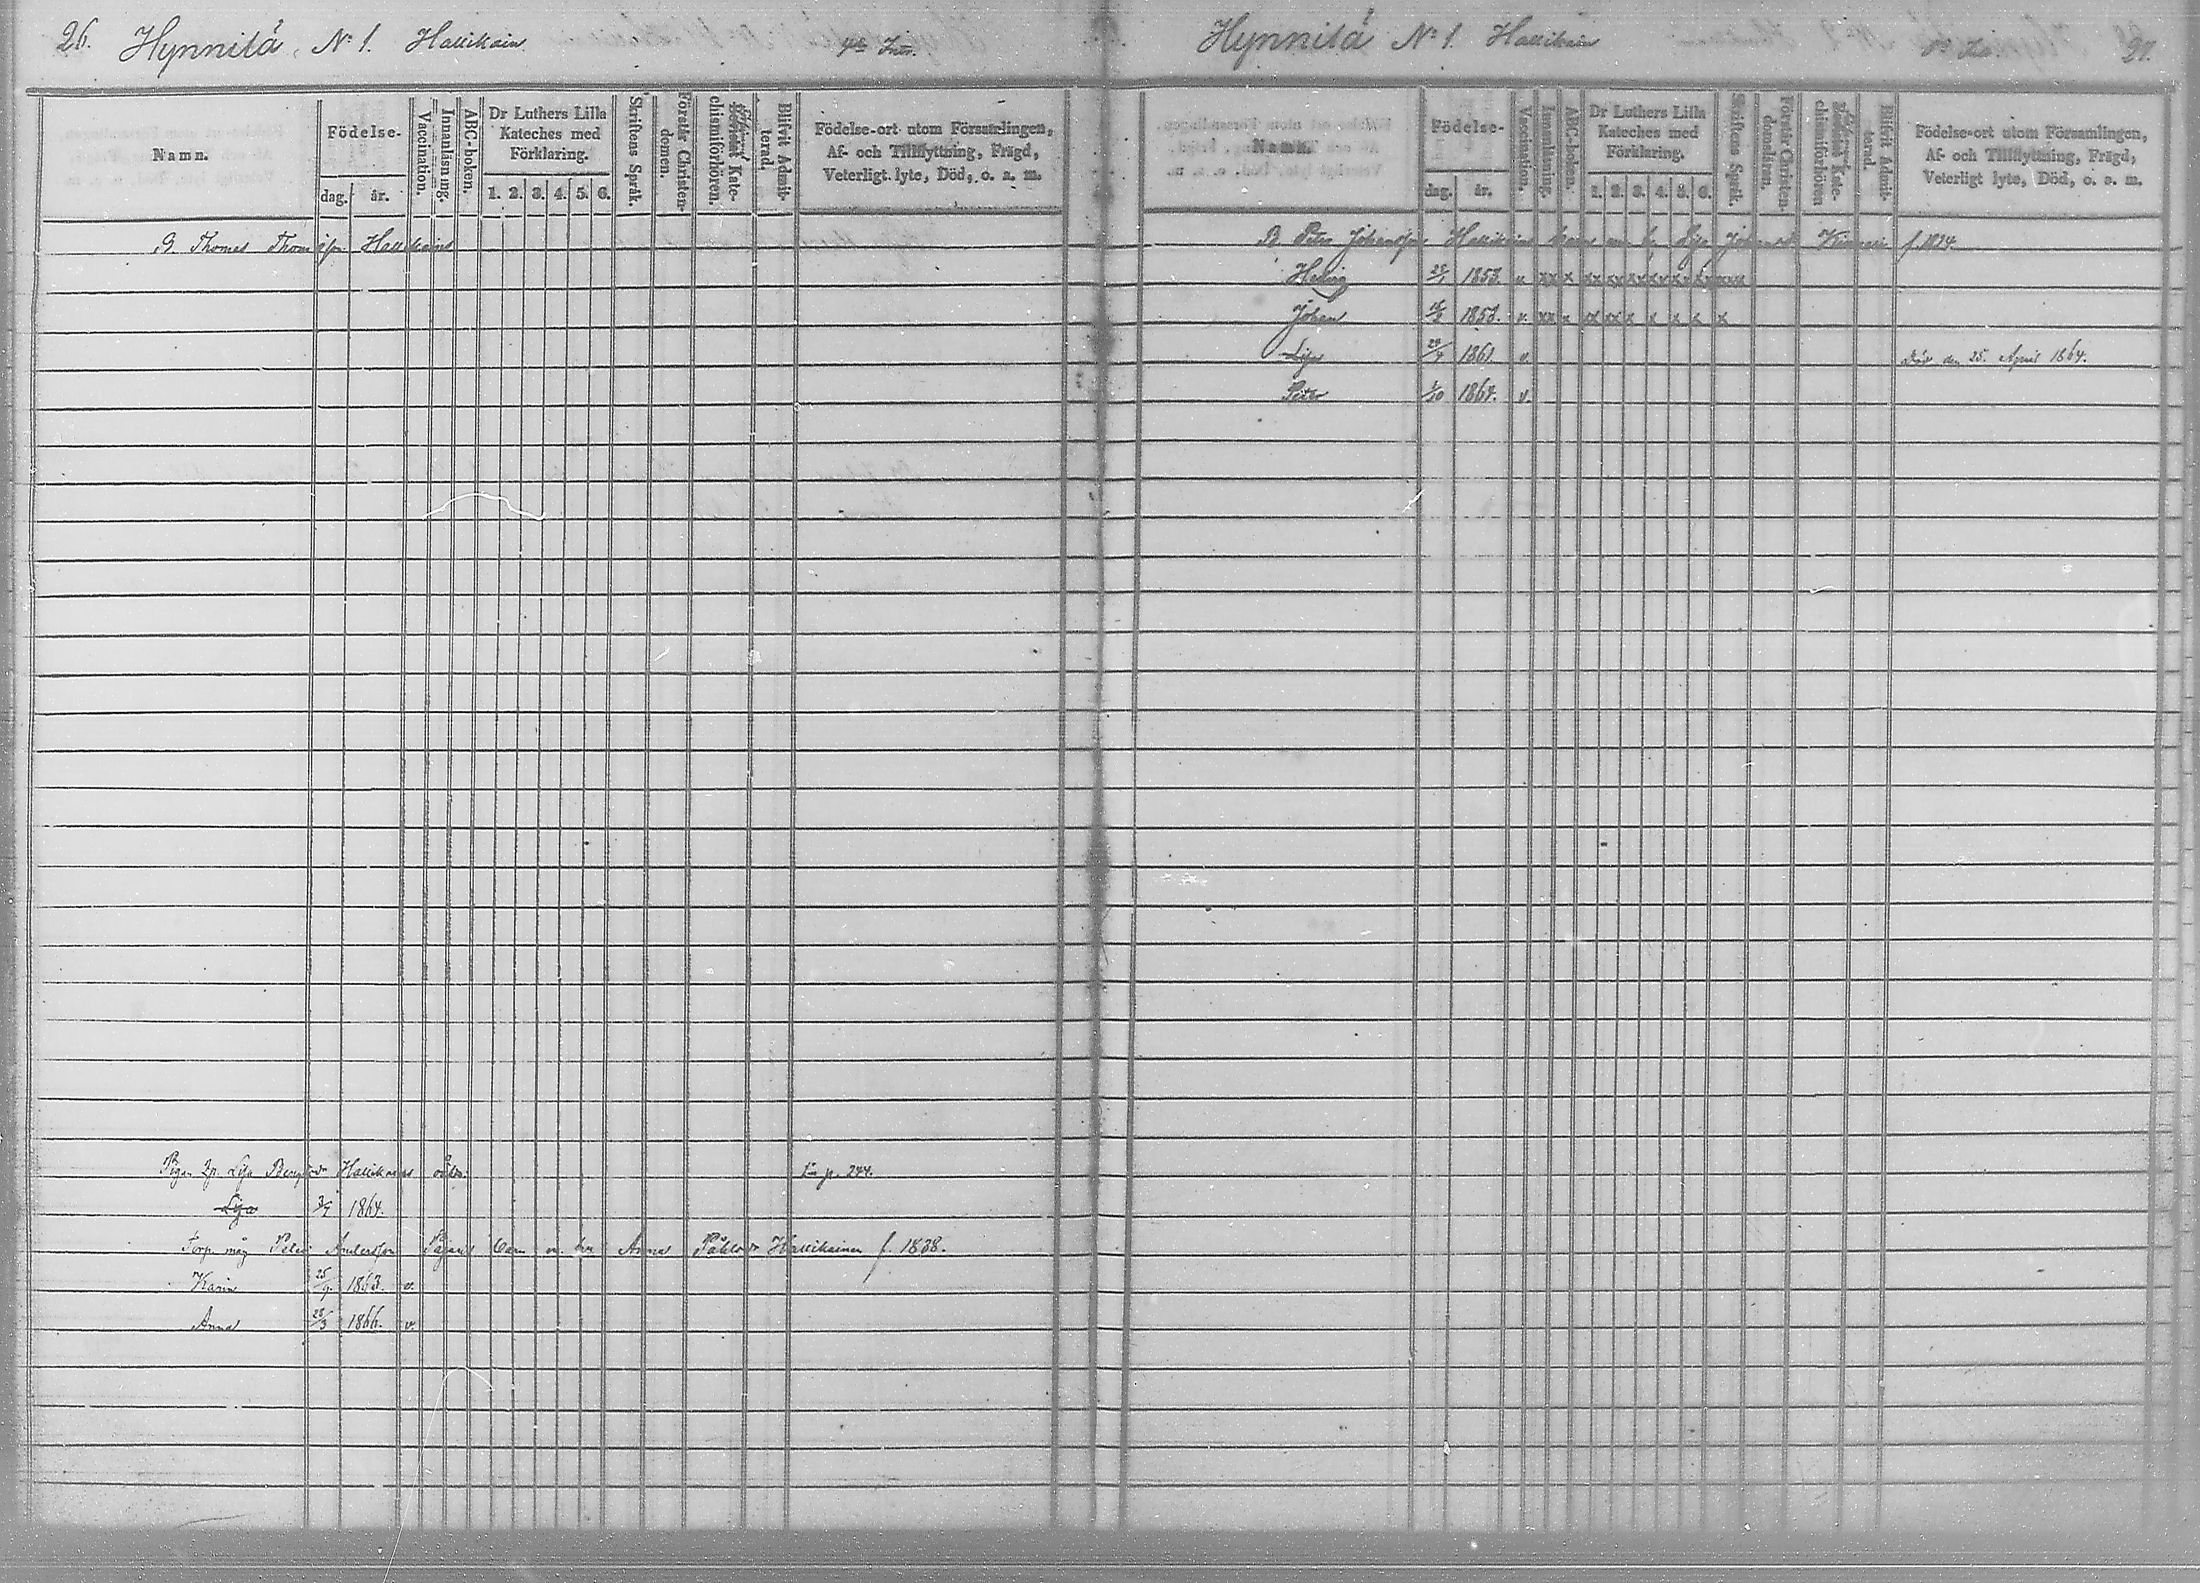 26. Hynnilä, N:o 1. Hallikain
Namn.
Födelse-
dag. år.
Vaccination.
Innanläsning.
ABC-boken.
Dr Luthers Lilla
Kateches med
Förklaring.
1. 2. 3. 4. 5. 6.
Skriftens Språk.
Förstår Christen-
domen.
Kate-
chismiförhören.
Blifvit Admit-
terad.
Födelse-ort utom Församlingen,
Af- och Tillflyttning, Frägd,
Veterligt lyte, Död, o. s. m.
B. Thomas Thomasson Hallikains
Pigan Lisa Hallikains
Lisa 1864.
Torp. måg Peter Andersson Pajari barn m. hu Anna Påhlsdr Hallikainen f. 1838.
Karin 25/9. 1863. v.
Anna 28/3 1866. v.
p. 244.
Hynnilä N:o 1. Hallikain 27.
Namn.
Födelse-
dag. år.
Vaccination.
Innanläsning.
ABC-boken.
Dr Luthers Lilla
Kateches med
Förklaring.
1. 2. 3. 4. 5. 6.
Skriftens Språk.
Förstår Christen-
domsläran.
Kate-
chismiförhören
Blifvit Admit-
terad.
Födelse-ort utom Församlingen,
Af- och Tillflyttning, Frägd,
Veterligt lyte, Död, o. s. m.
B. Peter Johansson Hallikains barn m. h. Lisa Johansd. f. 1824.
Hedvig 1853. v. xx x xx xx xx xx xx xx xxx
Johan 1858. v. xx x xx xx x x x x x
Lisa 1861 v. Död den 25. April 1864.
Peter 1/10 1864. v.